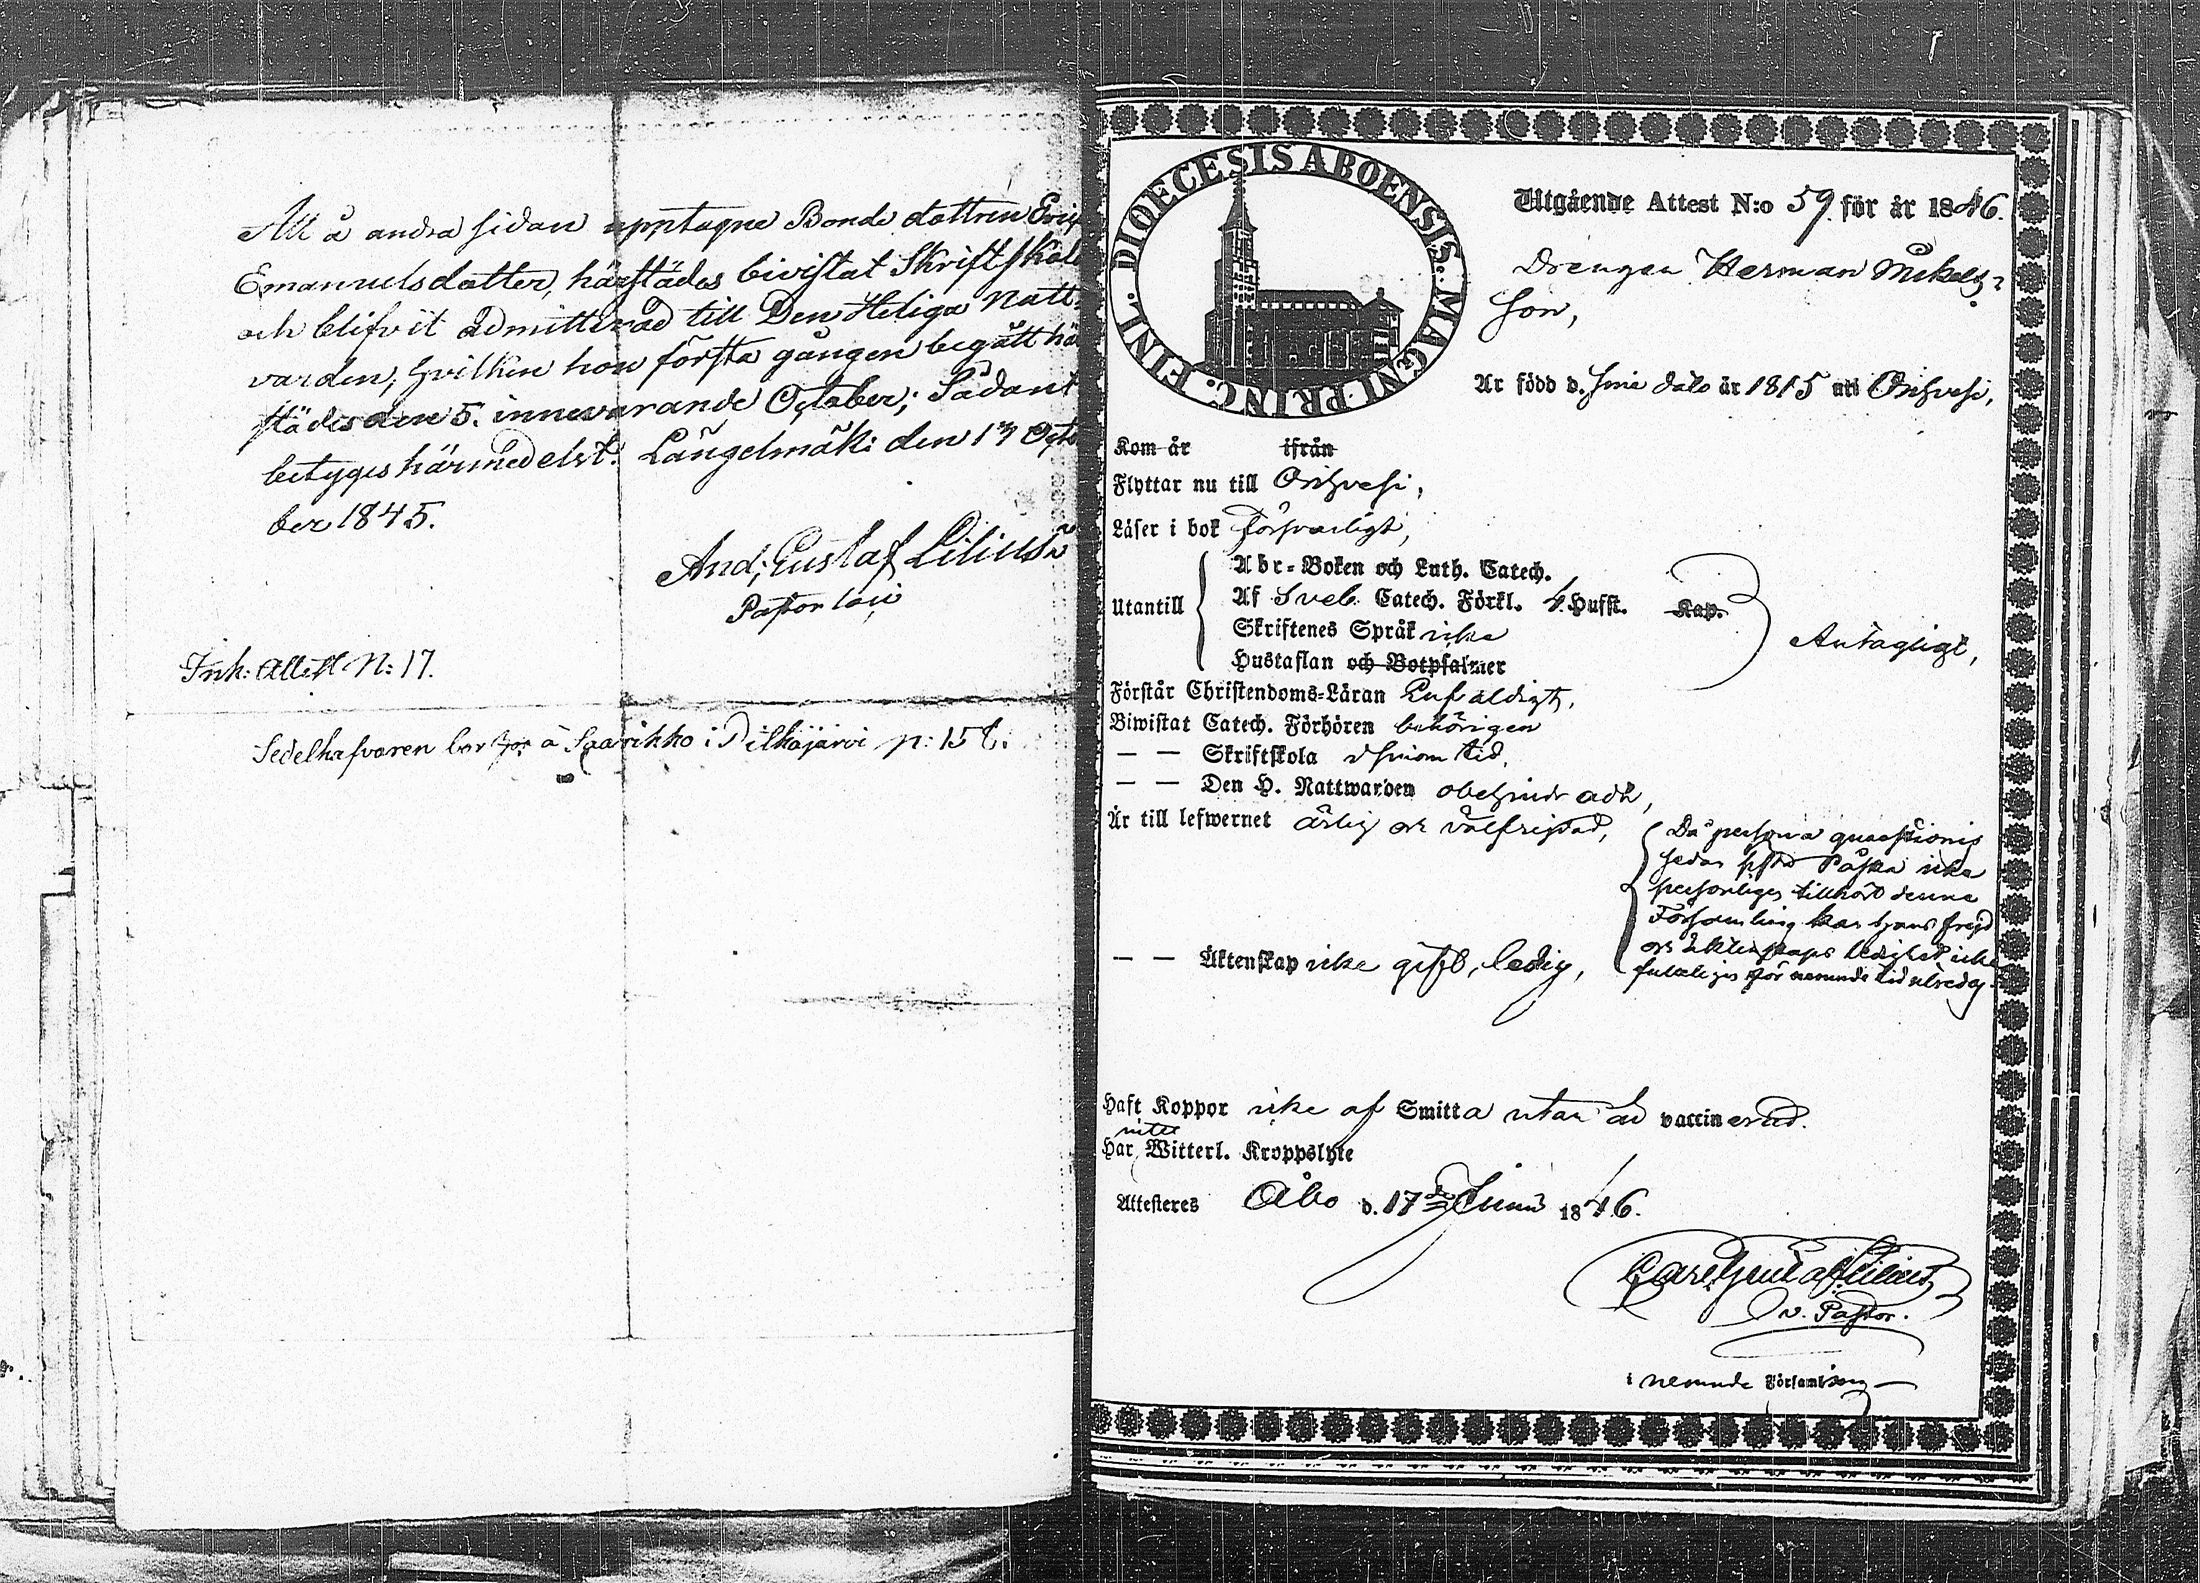 Att å andra sidan upptagne Bonde dottren Eric
Emanuelsdotter, härstädes bivistat Skriftskola
och blifvit admitterad till Den Heliga Natt-
varden, hvilken hon första gången begått hä
städes den 5. innevarande October; Sådant
betygas härmedelst. Längelmäki den 13 Octo
ber 1845.
And. Gustaf Lilius
Pastor loci
Ink: Attest N: 17.
Sedelhafvaren bor å Saarikko i Pitkäjärvi p: 15
DIOECESIS ABOENSIS. MAGNI PRINC. FINL.
Utgående Attest N:o 59 för år 1846.
Drengen Herman Mikels-
son,
Är född d. år 1815 uti Orihvesi,
Kom år ifrån
Flyttar nu till Orihvesi,
Läser i bok försvarligt,
Utantill
Abc-Boken och Luth. Catech.
Af Sveb. Catech. Förkl. 4. Hufst. Kap.
Skriftenes Språk icke
Hustaflan och Botpsalmer
Antagligt,
Förstår Christendoms-Läran Enfaldigt,
Biwistat Catech. Förhören behörigen
— — Skriftskola i sinom tid,
— — Den H. Nattwarden obehindradt,
Är till lefwernet ärlig och välfrejdad,
Då persona quaestionis
sedan sistl. Påska icke
personligen tillhört denne
Församling kan hans frejd
och äktenskaps ledighet icke
fulleligen för nemnde tid
— — Äktenskap icke gift, ledig,
Haft Koppor icke af Smitta utan är vaccinerad.
intet
Har Witterl. Kroppslyte
Attesteres Åbo d. 17de Junii 1846.
Carl Gust. af
v. Pastor.
i nemnde Församling